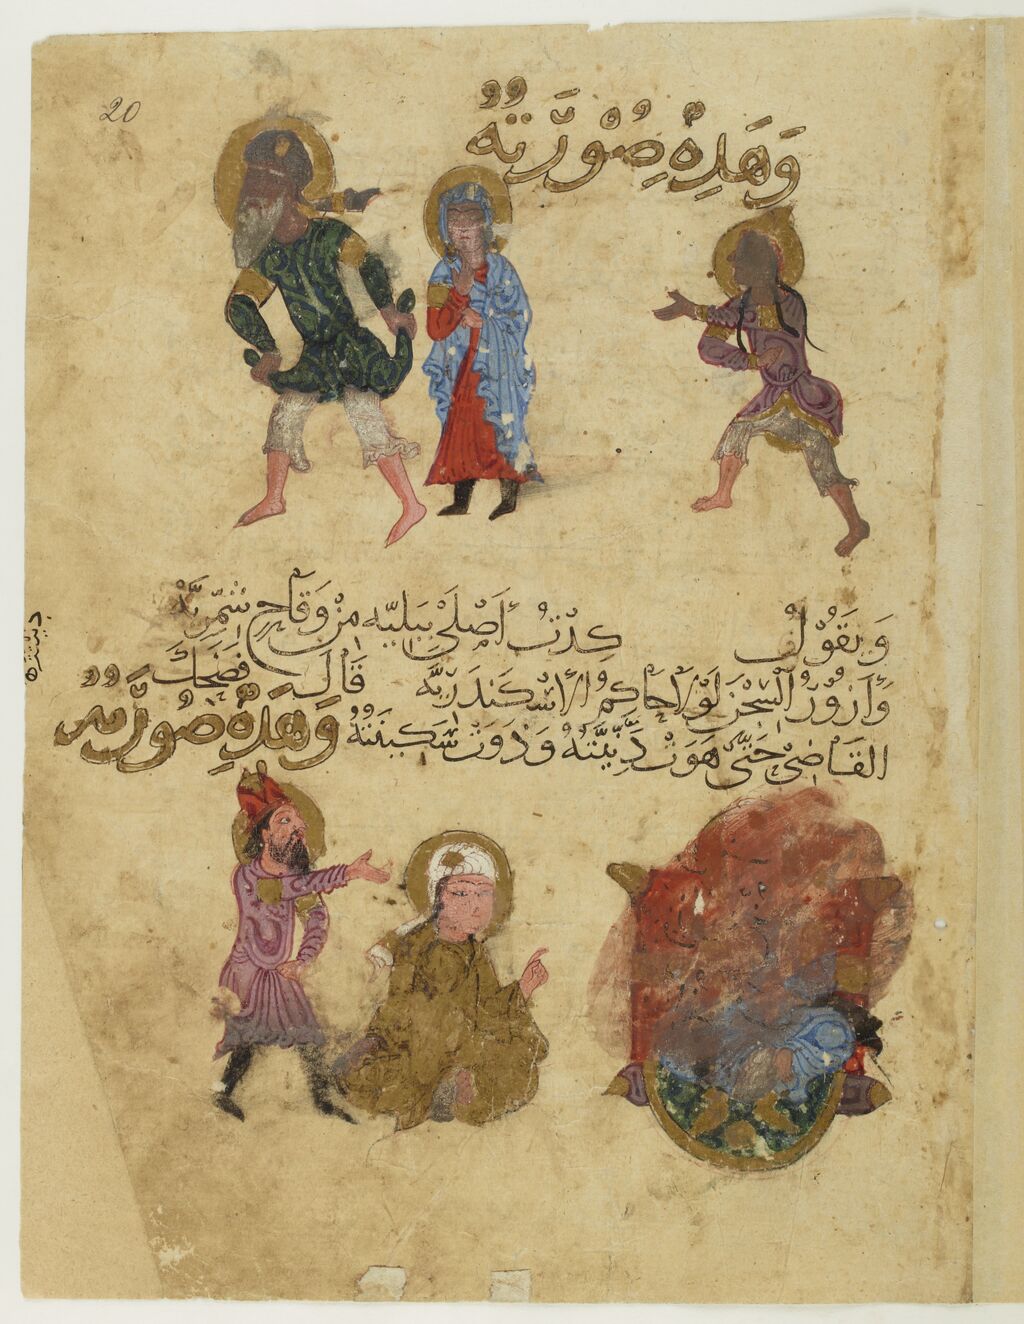 20
وَهَذِهْ صُوْرَتُهُ
وَيَقُوْلُ كِدْتُ أَصْلَى بِبَلِيَّه مِنْ وَقَاحٍ شِمِّرِيَّهْ
وَأَزُوْرُ السِّجْنَ لَوْلَا حَاكِمُ الْإِسْكَنْدَرِيَّه قَالَ فَضَحِكَ
القَاضِيْ حَتَّى هَوَتْ دَنِّيَّتُهُ وَذَوَتْ سَكِينَتُهُ وَهَذِهْ صُوْرَتُهُ